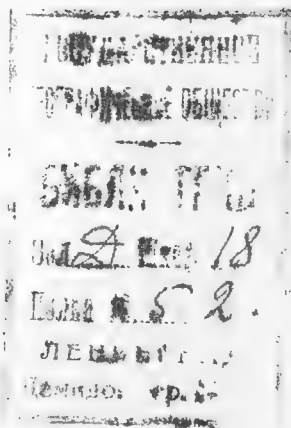 ГОСУДАРСТВЕННОЕ
ГЕОГРАФИЧЕСКОЕ ОБЩЕСТВО
БИБЛИОТЕКА
Зал Д Шкаф 18
Полка № 5 2.
ЛЕНИНГРАД
Демидов пр.